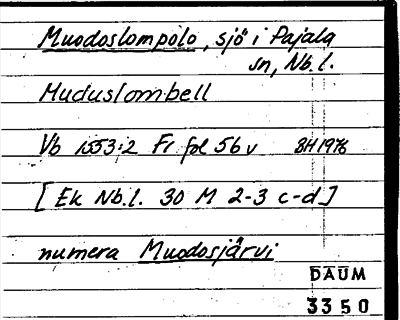 Muodoslompolo, sjö i Pajala
sn, Nb.l.
Muduslombell
Vb 1553:2 Fr fol 56v BH 1976
[Ek Nb.l. 30 M 2-3 c-d]
numera Muodosjärvi
DAUM
3350